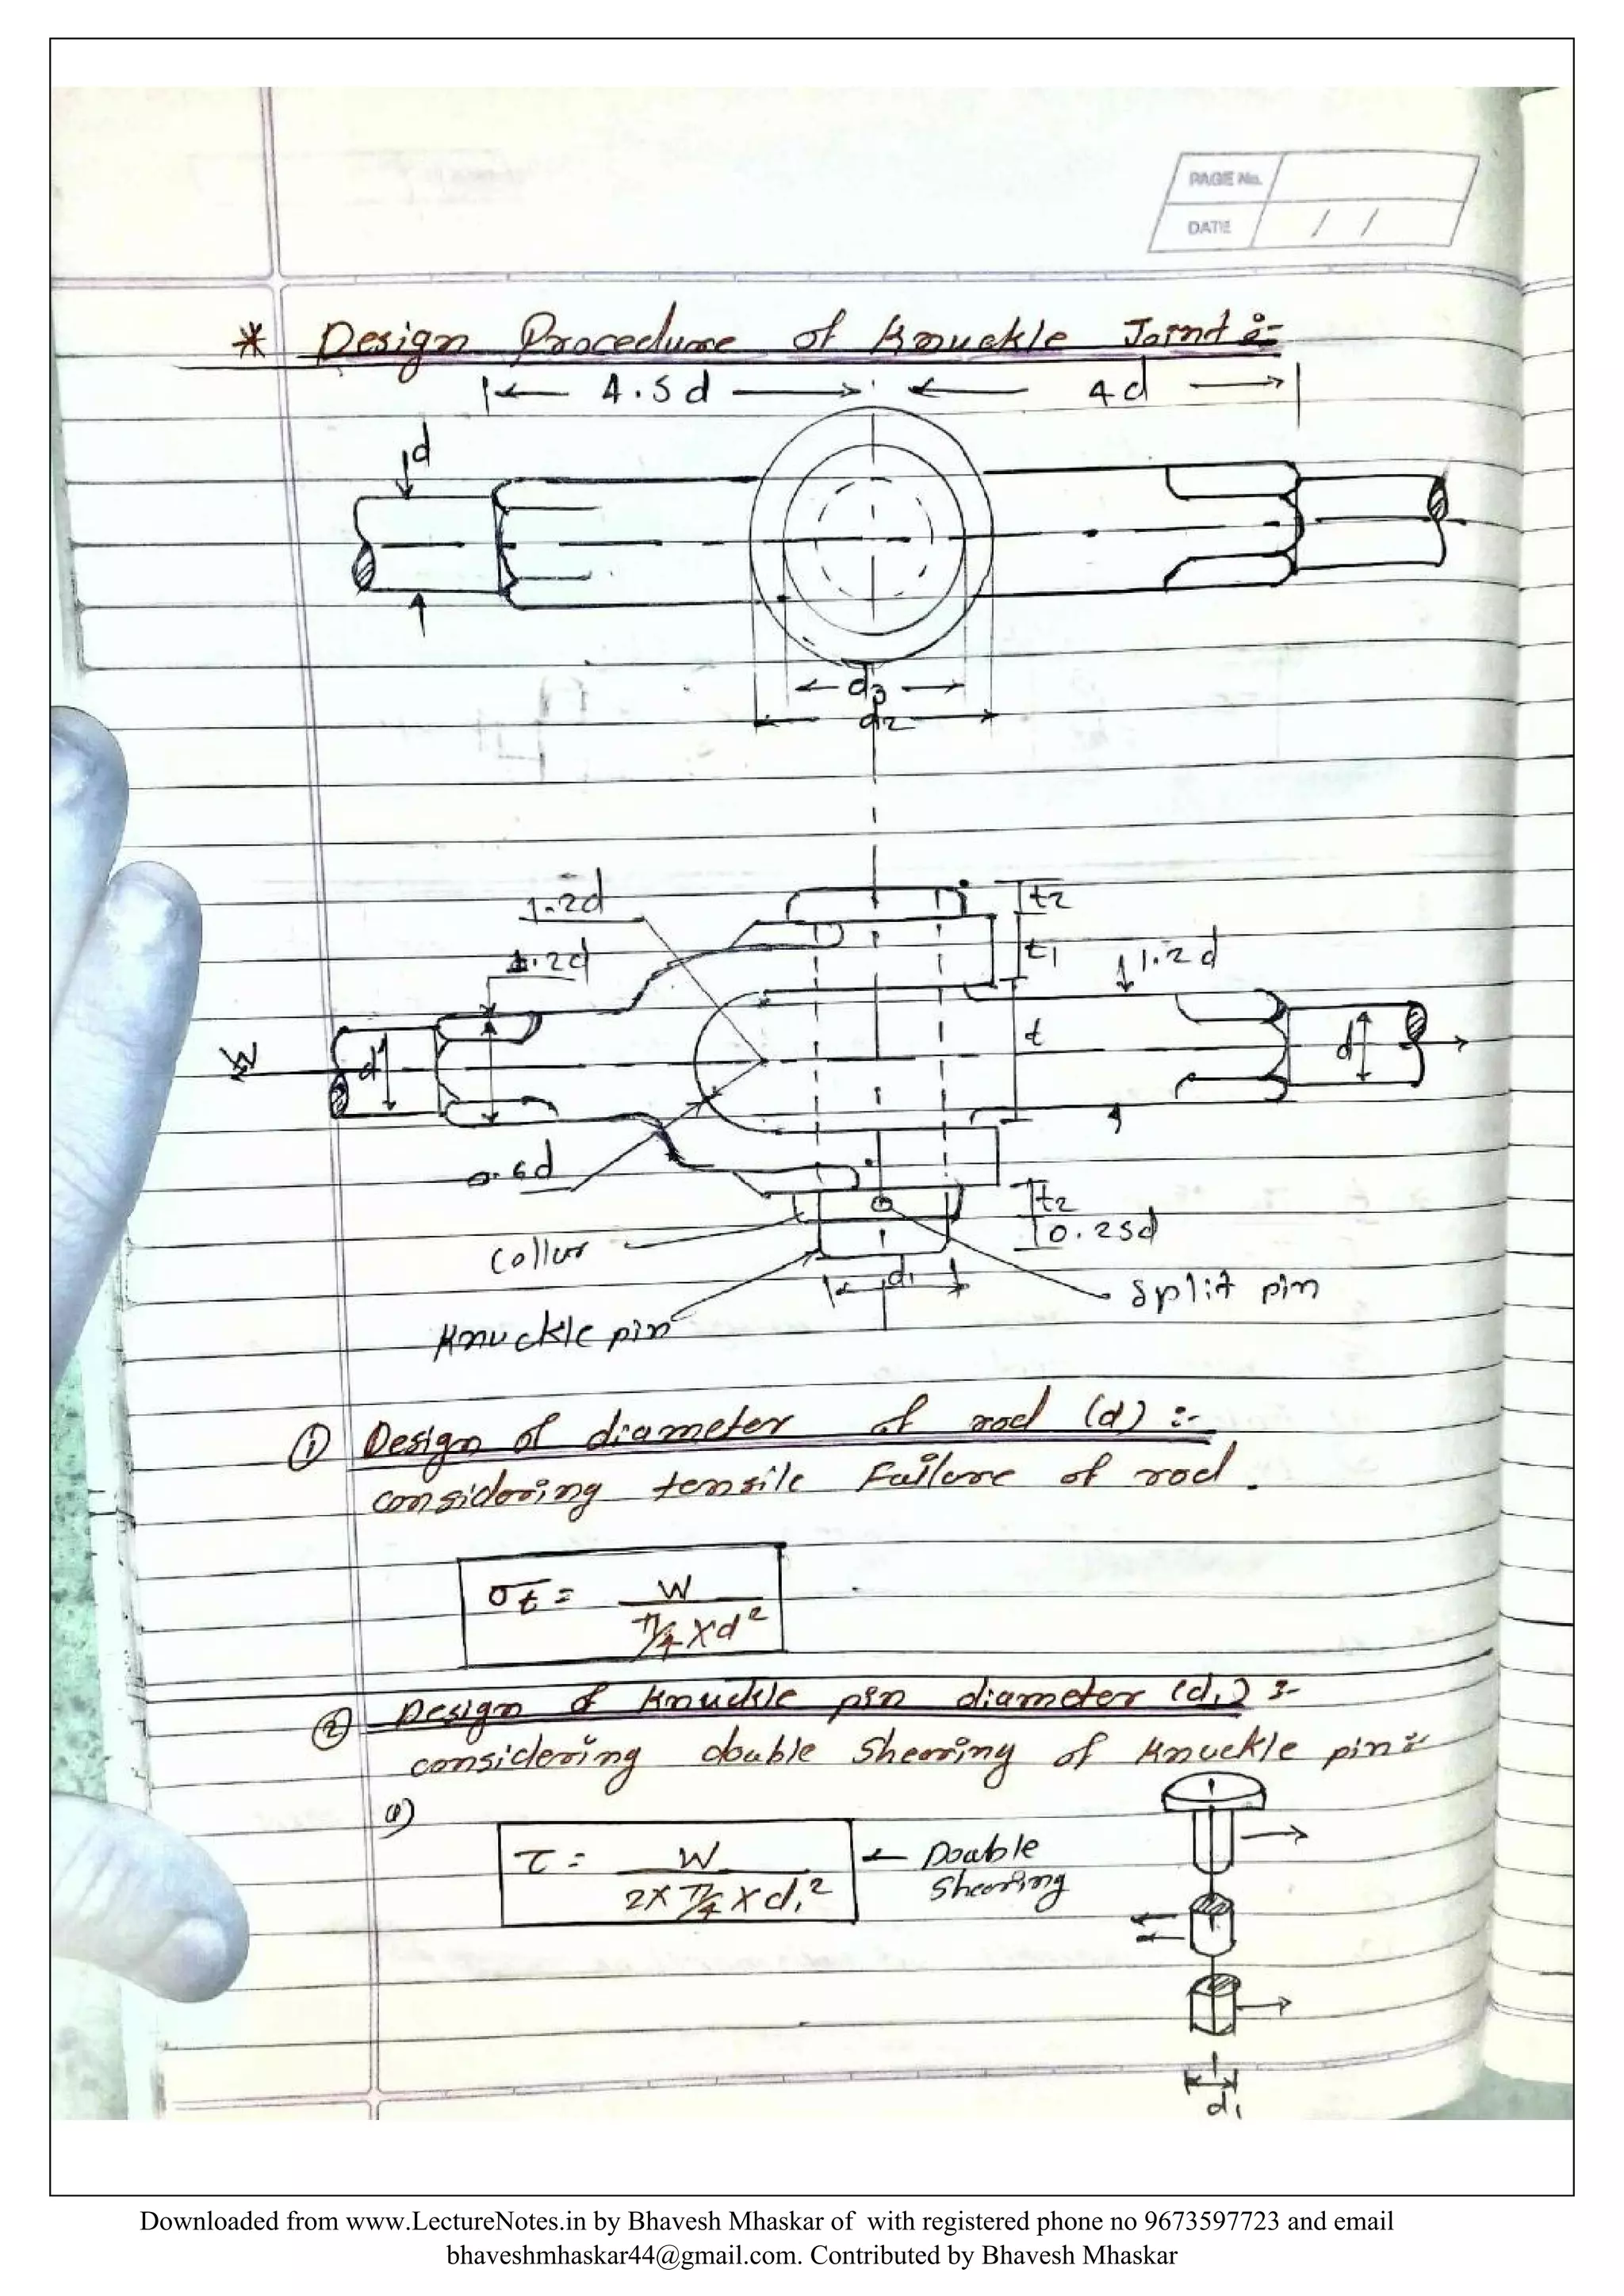 PAGE No.
DATE / /
* Design Procedure of Knuckle Joint :-
4.5d 4d
d
d3
d2
1.2d
t2
1.2d
t1
1.2d
W
d
t
d
0.6d
t2
0.25d
Collar
d1
Split pin
Knuckle pin
① Design of diameter of rod (d) :-
considering tensile Failure of rod.
σt = W / π/4 × d²
② Design of Knuckle pin diameter (d1) :-
considering double Shearing of Knuckle pin :-
τ = W / 2 × π/4 × d1² ← Double
Shearing
d1
Downloaded from www.LectureNotes.in by Bhavesh Mhaskar of with registered phone no 9673597723 and email
bhaveshmhaskar44@gmail.com. Contributed by Bhavesh Mhaskar